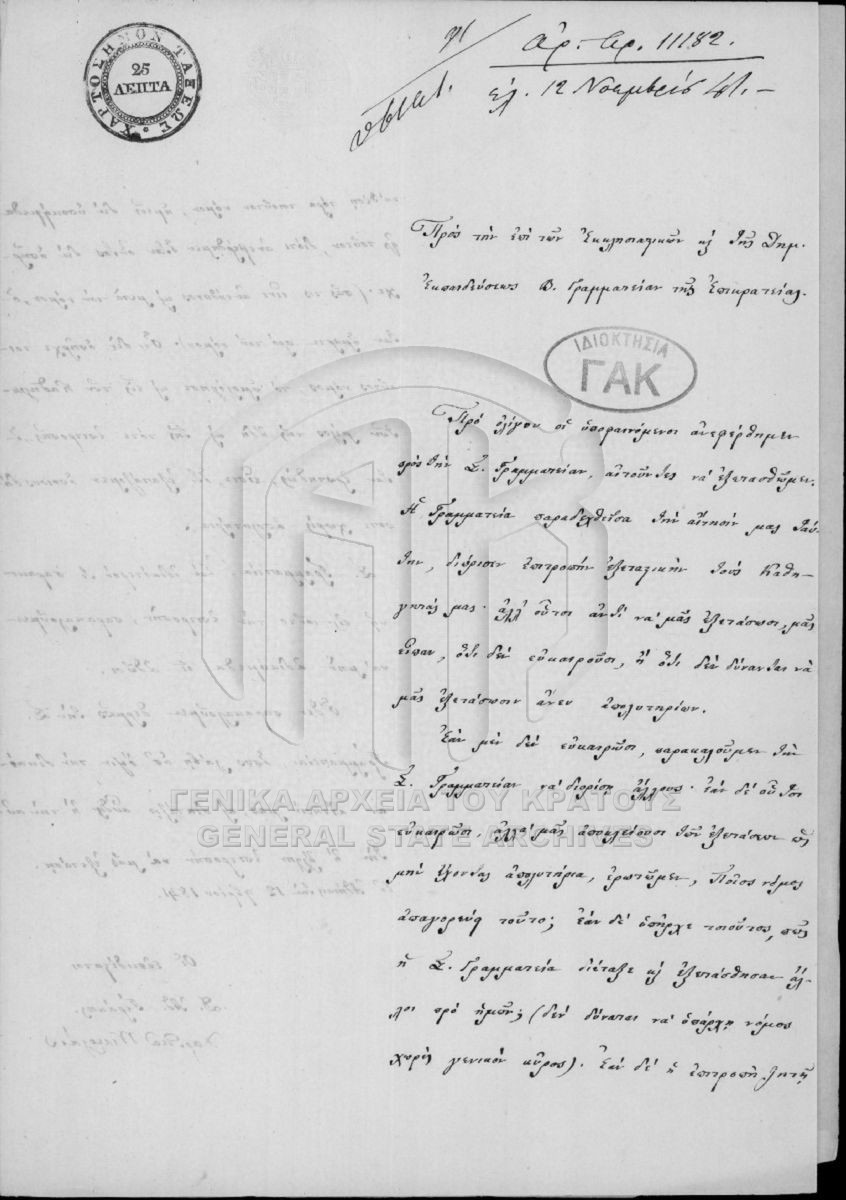 ΧΑΡΤΟΣΗΜΟΝ ΤΑΞΕΩΣ
25
ΛΕΠΤΑ
Ἀρ. 11182.
ἐλ. 12 Νοεμβρίȣ 41.-
Πρὸς τὴν ἐπὶ τῶν Ἐκκλησιαστικῶν κ̣ τῆς Δημ.
Ἐκπαιδεύσεως Β. Γραμματείαν τῆς Ἐπικρατείας.
ΙΔΙΟΚΤΗΣΙΑ
ΓΑΚ
Πρὸ ὀλίγου οἱ ὑποφαινόμενοι ἀνεφέρθημεν
πρὸς τὴν Σ. Γραμματείαν, αἰτοῦντες νὰ ἐξετασθῶμεν.
Ἡ Γραμματεία παραδεχθεῖσα τὴν αἴτησίν μας ταύ-
την, διώρισεν ἐπιτροπὴν ἐξεταστικὴν τοὺς Καθη-
γητάς μας· ἀλλ' οὗτοι ἀντὶ νὰ μᾶς ἐξετάσωσι, μᾶς
εἶπαν, ὅτι δὲν εὐκαιροῦσι, ἢ ὅτι δὲν δύνανται νὰ
μᾶς ἐξετάσωσιν ἄνευ ἀπολυτηρίων.
Ἐὰν μὲν δὲν εὐκαιρῶσι, παρακαλοῦμεν τὴν
Σ. Γραμματείαν νὰ διορίσῃ ἄλλους· ἐὰν δὲ οὗτοι
εὐκαιρῶσι, ἀλλὰ μᾶς ἀποκλείουσι τῶν ἐξετάσεων ὡς
μὴν ἔχοντας ἀπολυτήρια, ἐρωτῶμεν, Ποῖος νόμος
ἀπαγορεύει τοῦτο; ἐὰν δὲ ὑπῆρχε τοιοῦτος, πῶς
ἡ Σ. Γραμματεία διέταξε κ̣ ἐξετάσθησαν ἄλ-
λοι πρὸ ἡμῶν; (δὲν δύναται νὰ ὑπάρχῃ νόμος
χωρὶς γενικὸν κῦρος). Ἐὰν δὲ ἡ ἐπιτροπὴ ζητῇ
ΓΕΝΙΚΑ ΑΡΧΕΙΑ ΤΟΥ ΚΡΑΤΟΥΣ
GENERAL STATE ARCHIVES